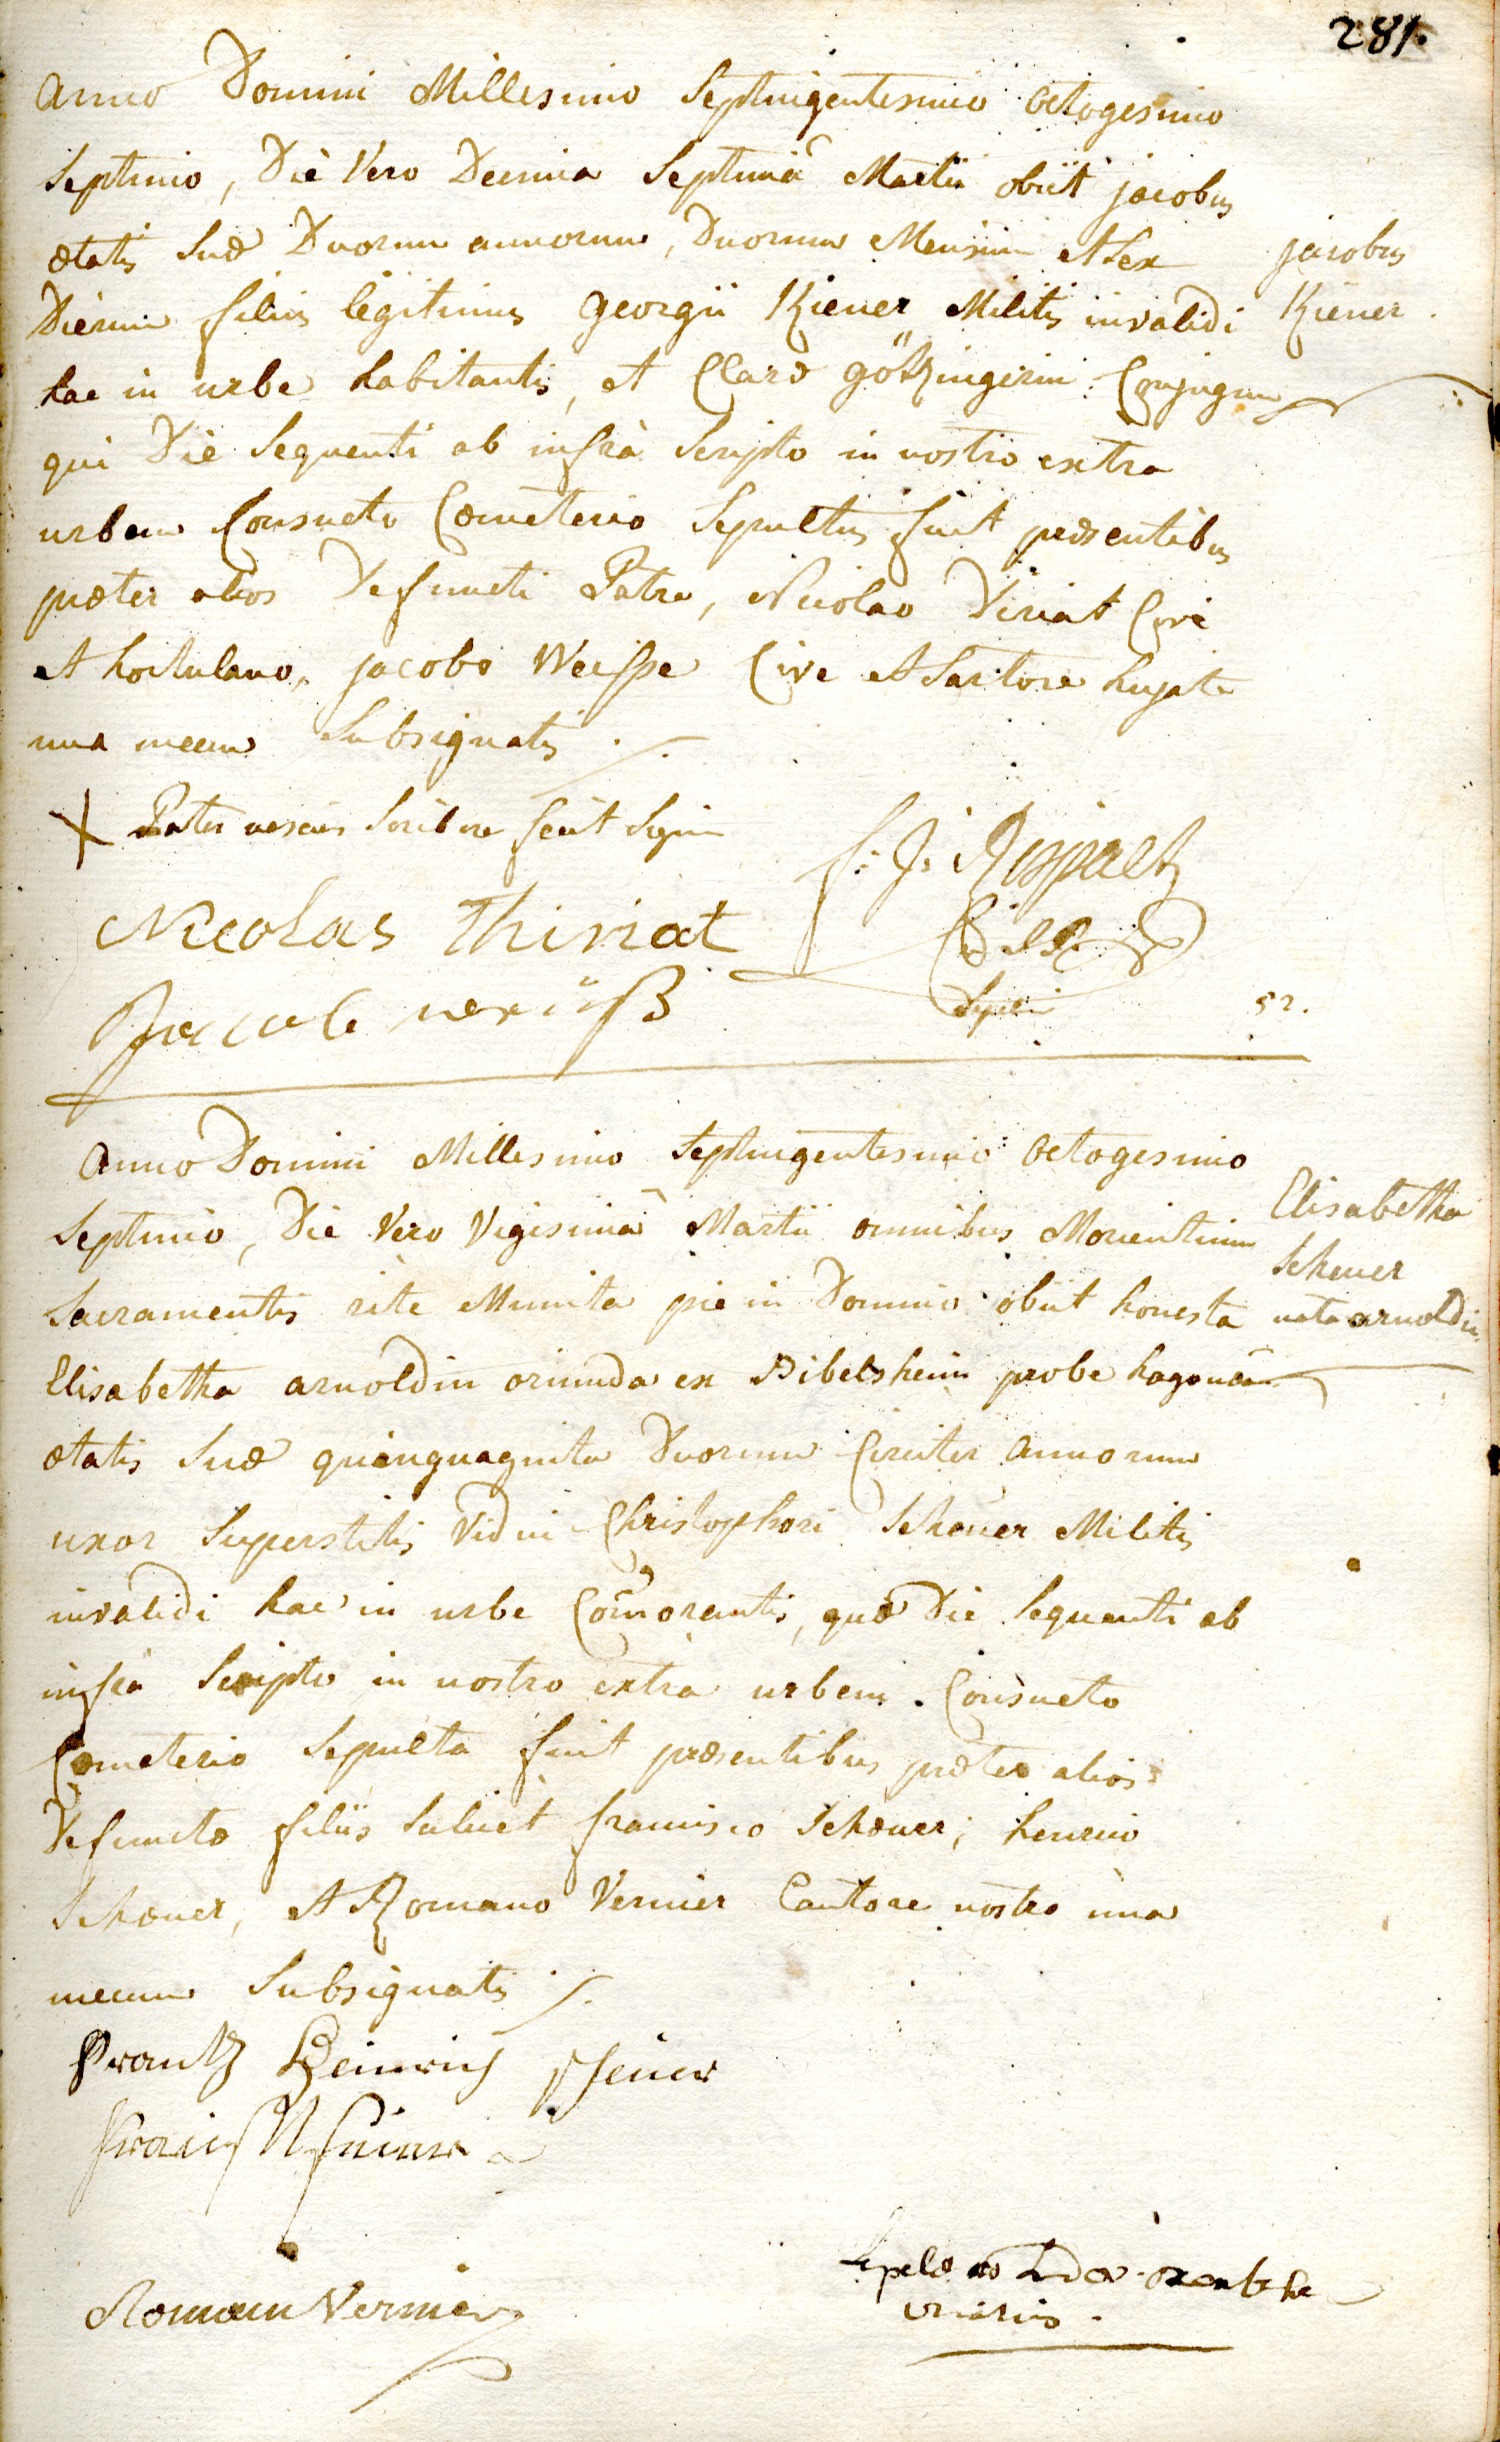 281.
Anno Domini Millesimo Septingentesimo octogesimo
Septimo, Die Vero Decima Septimâ Martii obiit jacobus
ætatis suæ Duorum annorum, Duorum Mensium et sex
Dierum filius legitimus georgii Kiener Militis invalidi
hac in urbe habitantis, et Claræ götzingerin Conjugum
jacobus
Kiener.
qui Die sequenti ab infrà scripto in nostro extra
urbem Consueto Cœmeterio sepultus fuit præsentibus
præter alios Defuncti Patre, Nicolao Viriat Cive
et hortulano, jacobo Weisse Cive et Sartore hujate
una mecum subsignatis ./.
X Pater nescius scribere fecit signum
Nicolas Thiriat
52.
Anno Domini Millesimo septingentesimo octogesimo
Septimo, Die Vero Vigesimâ Martii omnibus Morientium
Sacramentis rite Munita pie in Domino obiit honesta
Elisabetha arnoldin oriunda ex Bibelsheim probe hagonoam
Elisabetha
Scheuer
nata arnoldin
ætatis suæ quinquaginta Duorum Circiter annorum
uxor superstitis Vidui Christophori Scheuer Militis
invalidi hac in urbe Com̃orantis, quæ Die sequenti ab
infrà scripto in nostro extra urbem Consueto
Cœmeterio sepulta fuit præsentibus præter alios
Defunctæ filiis scilicet francisco Schæuer, henrico
Schæuer, et Romano Vernier Cantore nostro una
mecum subsignatis ./.
Frantz Heinrich scheuer
Roman Vernier